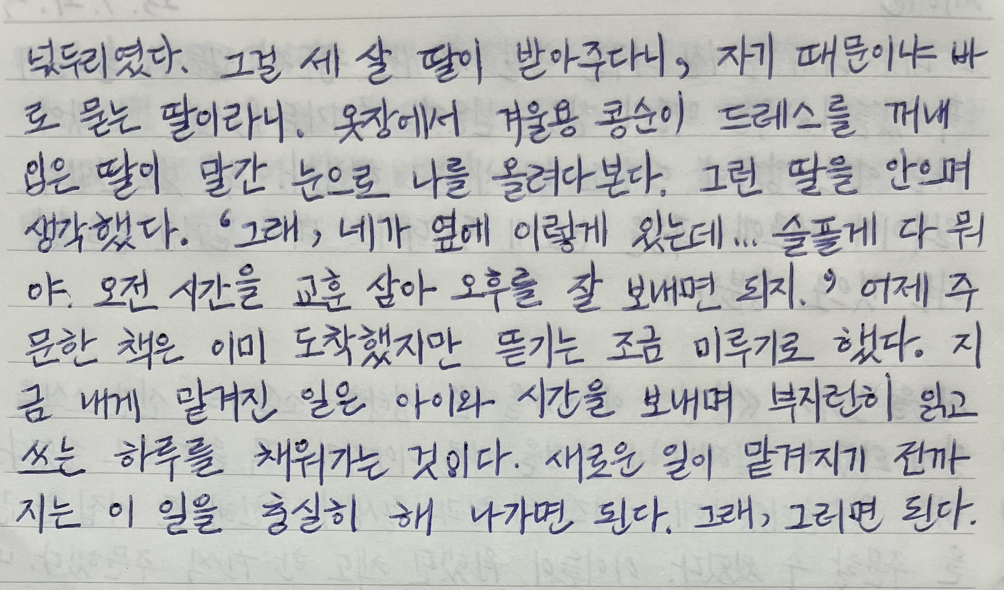 넋두리였다. 그걸 세 살 딸이 받아주다니, 자기 때문이냐 바
로 묻는 딸이라니. 옷장에서 겨울용 콩순이 드레스를 꺼내
입은 딸이 말간 눈으로 나를 올려다본다. 그런 딸을 안으며
생각했다. '그래, 네가 옆에 이렇게 있는데... 슬플게 다 뭐
야. 오전 시간을 교훈 삼아 오후를 잘 보내면 되지.' 어제 주
문한 책은 이미 도착했지만 뜯기는 조금 미루기로 했다. 지
금 내게 맡겨진 일은 아이와 시간을 보내며 부지런히 읽고
쓰는 하루를 채워가는 것이다. 새로운 일이 맡겨지기 전까
지는 이 일을 충실히 해 나가면 된다. 그래, 그러면 된다.